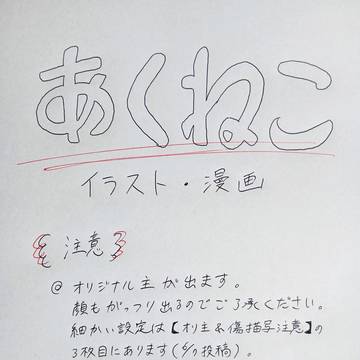 あくねこ
イラスト・漫画
注意
@ オリジナル主が出ます。
顔もがっつり出るのでご了承ください。
細かい設定は【オリ主&傷描写注意】の
3枚目にあります(6/9投稿)。